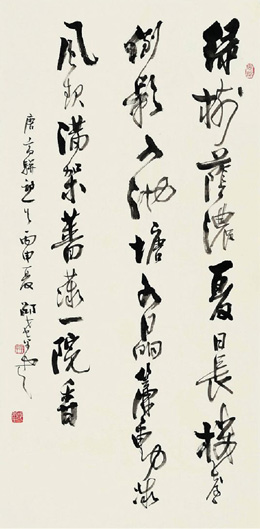 綠樹蔭濃夏日長樓臺
倒影入池塘水晶簾動微
風起滿架薔薇一院香
唐高駢 丙申夏